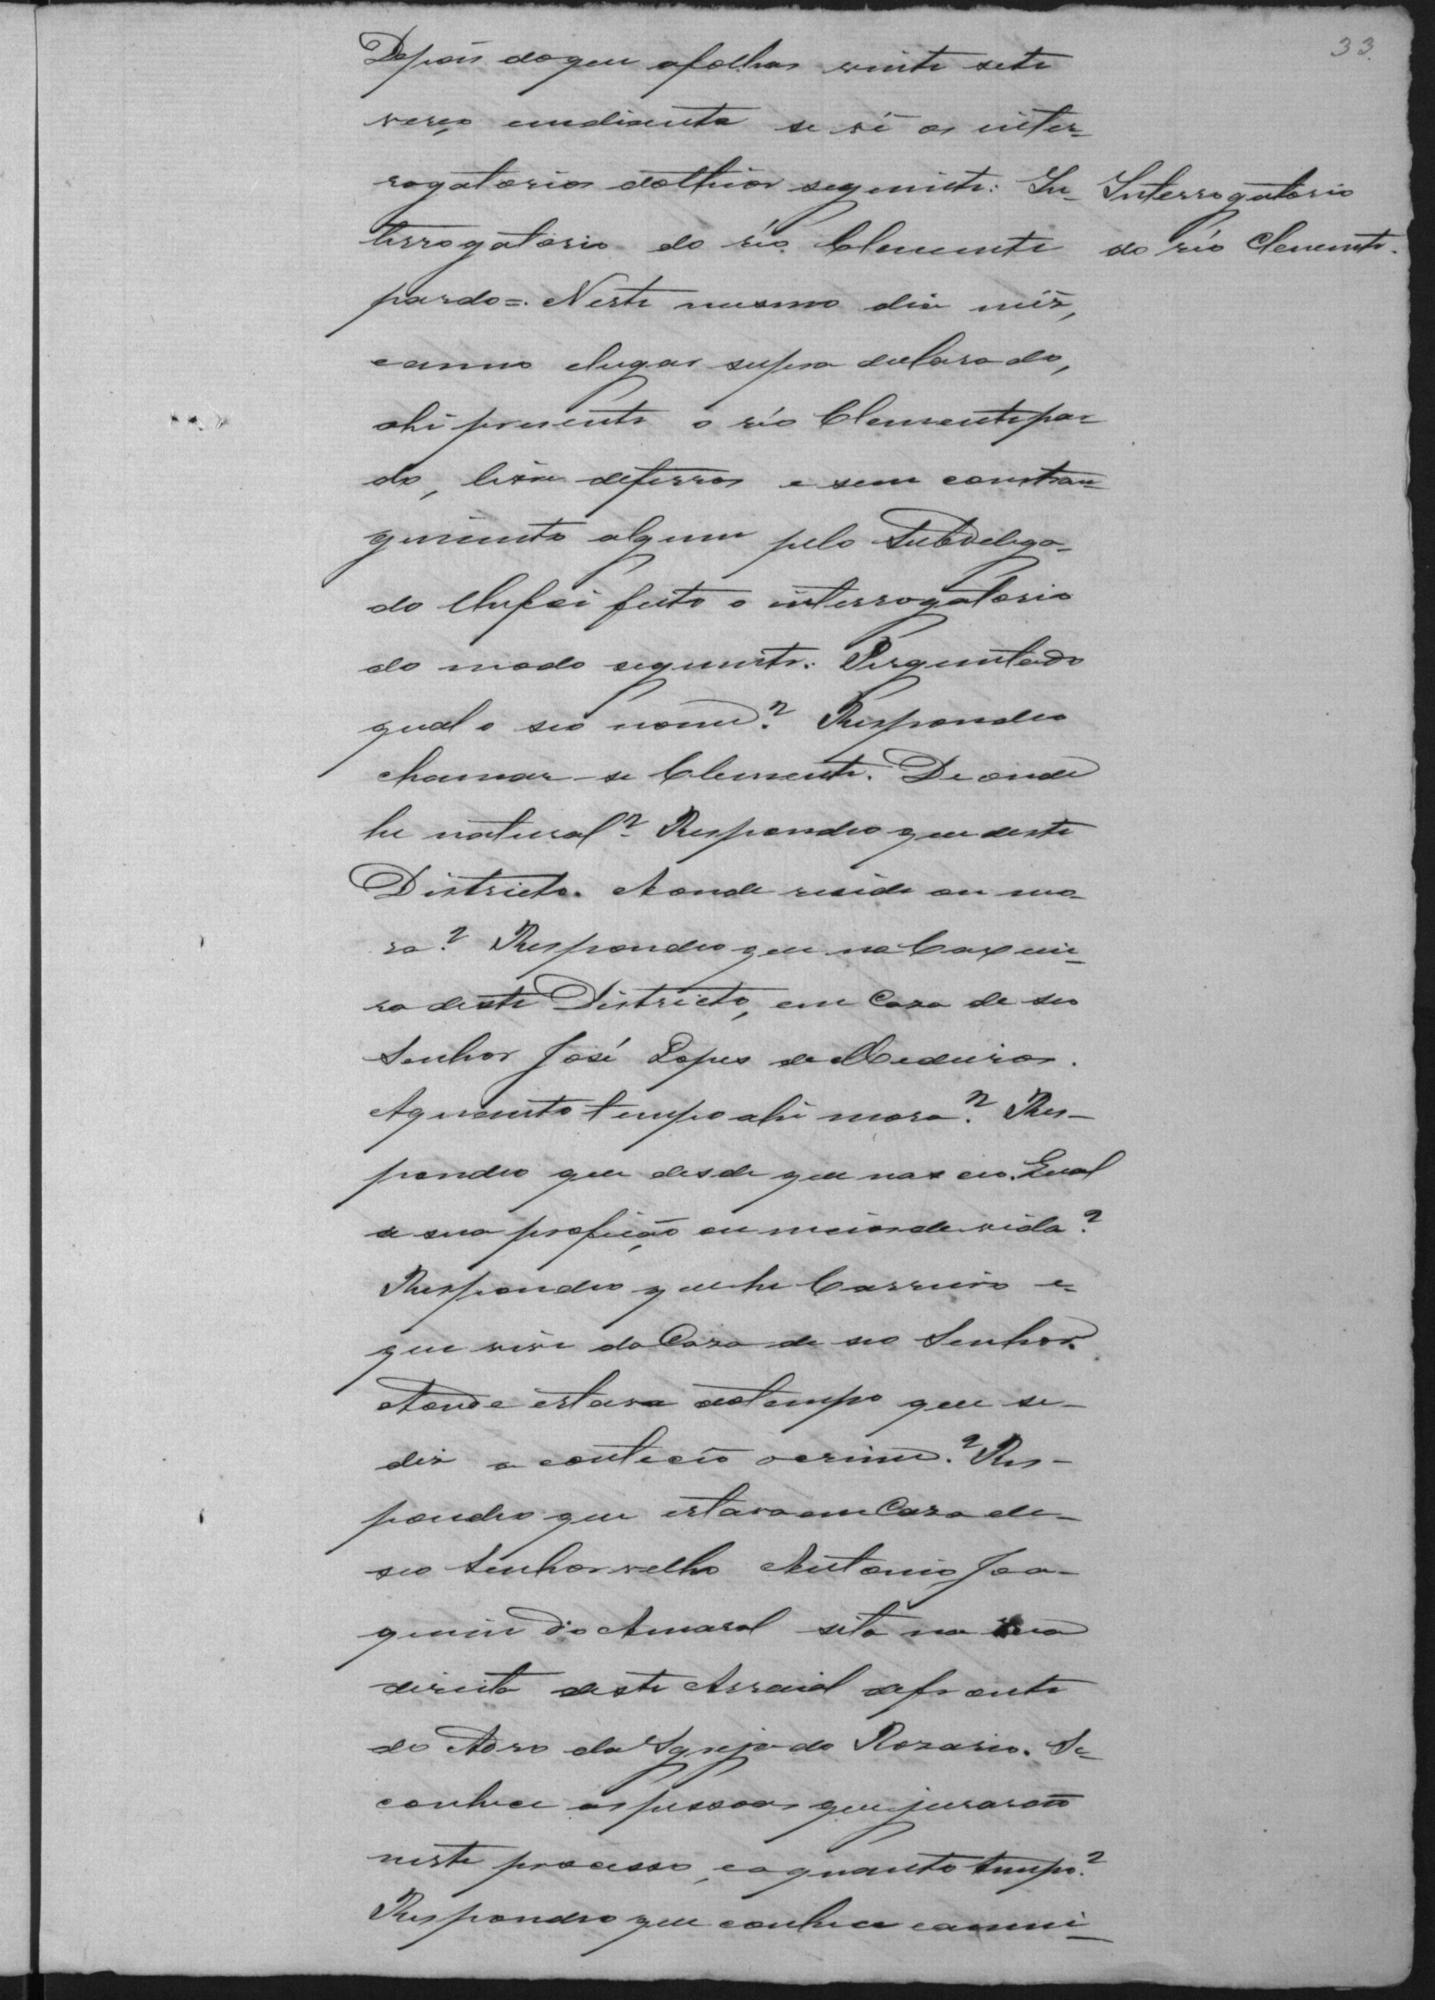 33
Depois do que afolhas vinte sete
verço emdiante se vê os inter-
rogatorios dotheor seguinte: In-
terrogatorio do réo Clemente
pardo=. Neste mesmo dia mêz,
eanno elugar supra declarado,
ahi presente o réo Clemente par-
do, livre deferros e sem constran-
gimento algum pelo Subdelega-
do lhefoi feito o interrogatorio
do modo seguinte: Perguntado
qual o seo nome? Respondeo
chamar-se Clemente. De onde
he natural? Respondeo que deste
Districto. Aonde reside ou mo-
ra? Respondeo que na Caxuei-
ra deste Districto, em Caza de seo
Senhor José Lopes de Medeiros.
Aquanto tempo ahi mora? Res-
pondeo que desde que nasceo. Qual
a sua profição ou meios de vida?
Respondeo que he Carreiro e-
que vive da Caza de seo Senhor.
Aonde estava aotempo que se-
diz aconteceo ocrime? Res-
pondeo que estava em Caza de-
seo Senhor velho Antonio Joa-
quim do Amaral sita na rua
direita deste Arraial defronte
do Adro da Igreja do Rozario. Se-
conhece as pessoas que jurarão
neste processo, eaquanto tempo?
Respondeo que conhece eammi-
Interrogatorio
do réo Clemente.